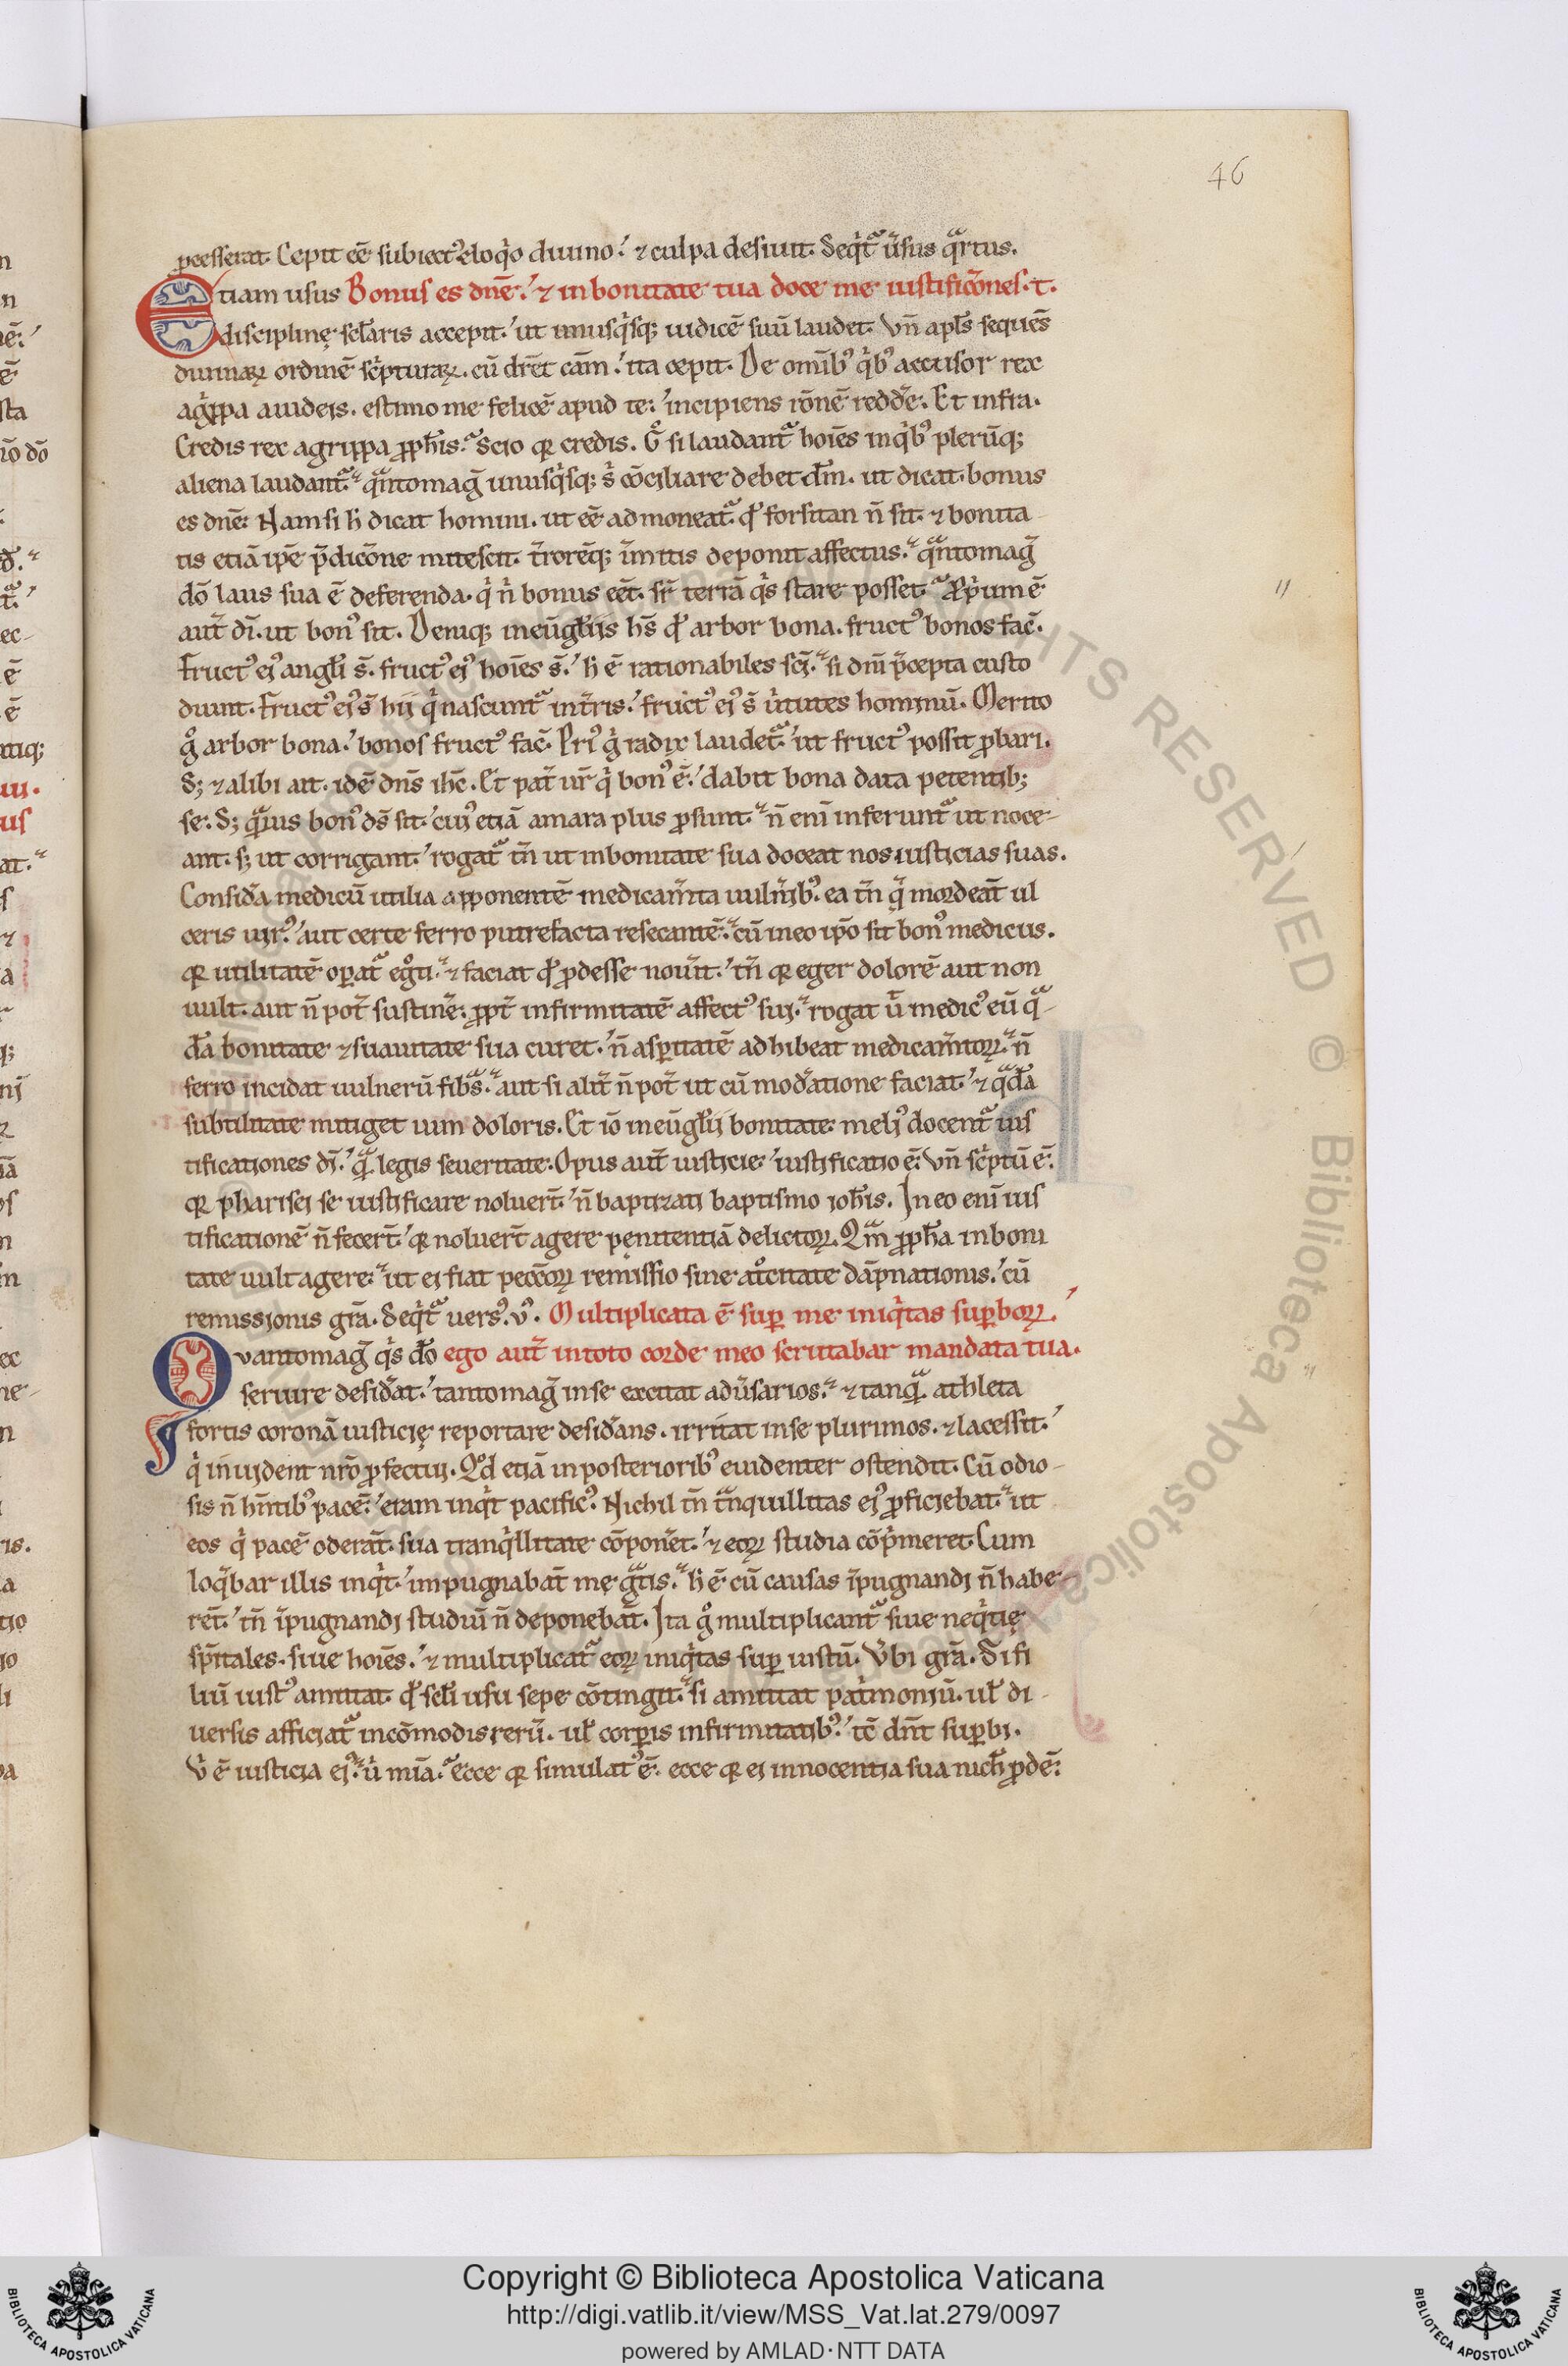 46
pcesserat. Cepit eē subiectꝰ eloq̇o diuino.' ⁊ culpa desiuit. Seqͥtᷓ ūsus qᷓrtus.
Etiam usus Bonus es dn̄e.' ⁊ in bonitate tua doce me iustificōnes. t.
disciplinę scl̄aris accepit.' ut unusqͥsq; iudicē suū laudet. Vn̄ apl̄s sequēs
diuinaꝝ ordinē scͥpturaꝝ. cū dr̄et cām.' ita cepit. De omībꝰ qͥbꝰ accusor rex
agͥppa a iudeis. estimo me felicē apud te: incipiens rōnē redd̄e. Et infra.
Credis rex agrippa ꝓph̄is. Scio qꝛ credis. Gͦ si laudantᷓ hoīes in qͥbꝰ plerūq;
aliena laudantᷓ. qᷓntomaḡ unusqͥsq; sͥ cōciliare debet dm̄. ut dicat. bonus
es dn̄e. Nam si h̄ dicat homini. ut eē admoneatᷓ. qd̄ forsitan n̄ sit. ⁊ bonita
tis etiā ip̄e p̄dicōne mitescit. t̄rorēq; īmitis deponit affectus. qᷓntomaḡ
dō laus sua ē deferenda. qͥ nͥ bonus eēt. sr̄ terrā qͥs stare posset. Ꝓpͥum ē
aut̄ dī. ut bonꝰ sit. Deniq; in eūgl̄ijs h̄s qd̄ arbor bona. fructꝰ bonos fac̄.
Fructꝰ eiꝰ angl̄i s̄. fructꝰ eiꝰ hoīes s̄.' h̄ ē rationabiles scī. si dn̄i p̄cepta custo
diunt. Fructꝰ eiꝰ s̄ hij qͥ nascuntᷓ in t̄ris.' fructꝰ eiꝰ s̄ uͥtutes hominū. Merito
gͦ arbor bona.' bonos fructꝰ fac̄. Priꝰ gͥ radix laudetᷓ.' ut fructꝰ possit ꝓbari.
S; ⁊ alibi ait. idē dn̄s ih̄c. Et pat̄ ur̄ qͥ bonꝰ ē.' dabit bona data petentib;
se. S; qᷓuis bonꝰ ds̄ sit.' cuiꝰ etiā amara plus ꝓsunt. n̄ enī inferuntᷓ ut noce-
ant. s; ut corrigant.' rogatᷓ tn̄ ut in bonitate sua doceat nos iusticias suas.
Consid̄a medicū utilia apponentē medicam̄ta uuln̄ibꝰ. ea tn̄ qͥ mordeāt ul
ceris uirꝰ.' aut certe ferro putrefacta resecantē. cū in eo ip̄o sit bonꝰ medicus.
qꝛ utilitatē oꝑatᷓ egͦti. ⁊ faciat qd̄ ꝓdesse nou̅it.' tn̄ qꝛ eger dolorē aut non
uult. aut n̄ pot̄ sustin̄e. ꝓpt̄ infirmitatē affectꝰ sui. rogat ū medicꝰ eū qᷓ-
d̄a bonitate ⁊ suauitate sua curet.' n̄ asꝑitatē adhibeat medicam̄toꝝ. n̄
ferro incidat uulnerū fibᷓs. aut si alit̄ n̄ pot̄ ut cū mod̄atione faciat.' ⁊ qᷓd̄a
subtilitate mitiget uim doloris. Et iō in eūgl̄ij bonitate meliꝰ docentᷓ ius
tificationes dī.' qᷓ legis seueritate. Opus aut̄ iusticie.' iustificatio ē. Vn̄ scͥptū ē.
qꝛ pharisei se iustificare noluer̄t.' n̄ baptizati baptismo ioh̄is. In eo enī ius
tificationē n̄ fecer̄t.' qꝛ noluer̄t agere pęnitentiā delictoꝝ. Qm̄ ꝓph̄a in boni
tate uult agere. ut ei fiat peccōꝝ remissio sine auc̄toritate dāpnationis.' cū
remissionis grā. Seqͥtᷓ uersꝰ. v̊. Multiplicata ē suꝑ me iniqͥtas suꝑboꝝ.'
Qvantomaḡ qͥs dō ego aut̄ in toto corde meo scrutabar mandata tua.
seruire desid̄at.' tantomaḡ in se excitat adūsarios. ⁊ tanqᷓ athleta
fortis coronā iusticię reportare desid̄ans. irritat in se plurimos. ⁊ lacessit.'
qͥ inuident nr̄o ꝓfectui. Qd̄ etiā in posterioribꝰ euidenter ostendit. Cū odio-
sis n̄ hn̄tibꝰ pacē.' eram inqͥt pacificꝰ. Nichil tn̄ tᷓnquillitas eiꝰ ꝓficiebat. ut
eos qͥ pacē oderāt. sua tranqͥllitate cōpon̄et.' ⁊ eoꝝ studia cōpͥmeret. Cum
loq̄bar illis inqͥt.' impugnabāt me gᷓtis. h̄ ē cū causas īpugnandi n̄ habe-
rēt.' tn̄ īpugnandi studiū n̄ deponebāt. Ita gͦ multiplicantᷓ siue neqͥtię
sp̄itales. siue hoīes.' ⁊ multiplicatᷓ eoꝝ iniqͥtas suꝑ iustū. Verbi grā. Si fi
liū iustꝰ amittat. qd̄ scl̄i usu sepe cōtingit. si amittat patͥmoniū. ul̄ di-
uersis afficiatᷓ incōmodis rerū. ul̄ corꝑis infirmitatibꝰ.' tc̄ dn̄t suꝑbi.
Vͥ ē iusticia eiꝰ. uͥ mīa. Ecce qꝛ simulatꝰ ē. ecce qꝛ ei innocentia sua nich̄ ꝓdē.
© Biblioteca Apostolica Vaticana
ALL RIGHTS RESERVED
Copyright © Biblioteca Apostolica Vaticana
http://digi.vatlib.it/view/MSS_Vat.lat.279/0097
powered by AMLAD·NTT DATA
BIBLIOTECA APOSTOLICA VATICANA
BIBLIOTECA APOSTOLICA VATICANA